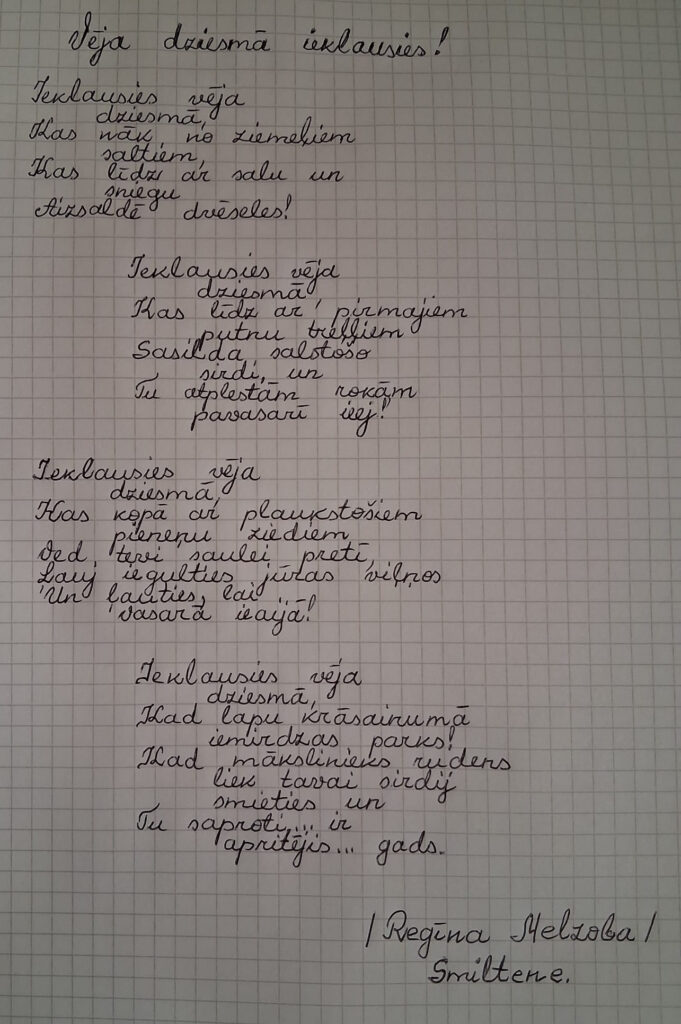 Vēja dziesmā ieklausies!
Ieklausies vēja
dziesmā,
Kas nāk no ziemeļiem
saltiem,
Kas līdzi ar salu un
sniegu
Aizsaldē dvēseles!
Ieklausies vēja
dziesmā,
Kas līdz ar pirmajiem
putnu treļļiem
Sasilda salstošo
sirdi, un
Tu atplestām rokām
pavasarī iej!
Ieklausies vēja
dziesmā,
Kas kopā ar plaukstošiem
pieneņu ziediem
Ved tevi saulei pretī,
Ļauj iegulties jūras viļņos
Un ļauties, lai
vasara ieaijā!
Ieklausies vēja
dziesmā,
Kad lapu krāsainumā
iemirdzas parks!
Kad mākslinieks rudens
liek tavai sirdij
smieties un
Tu saproti,... ir
apritējis... gads.
/Regīna Melzoba/
Smiltene.